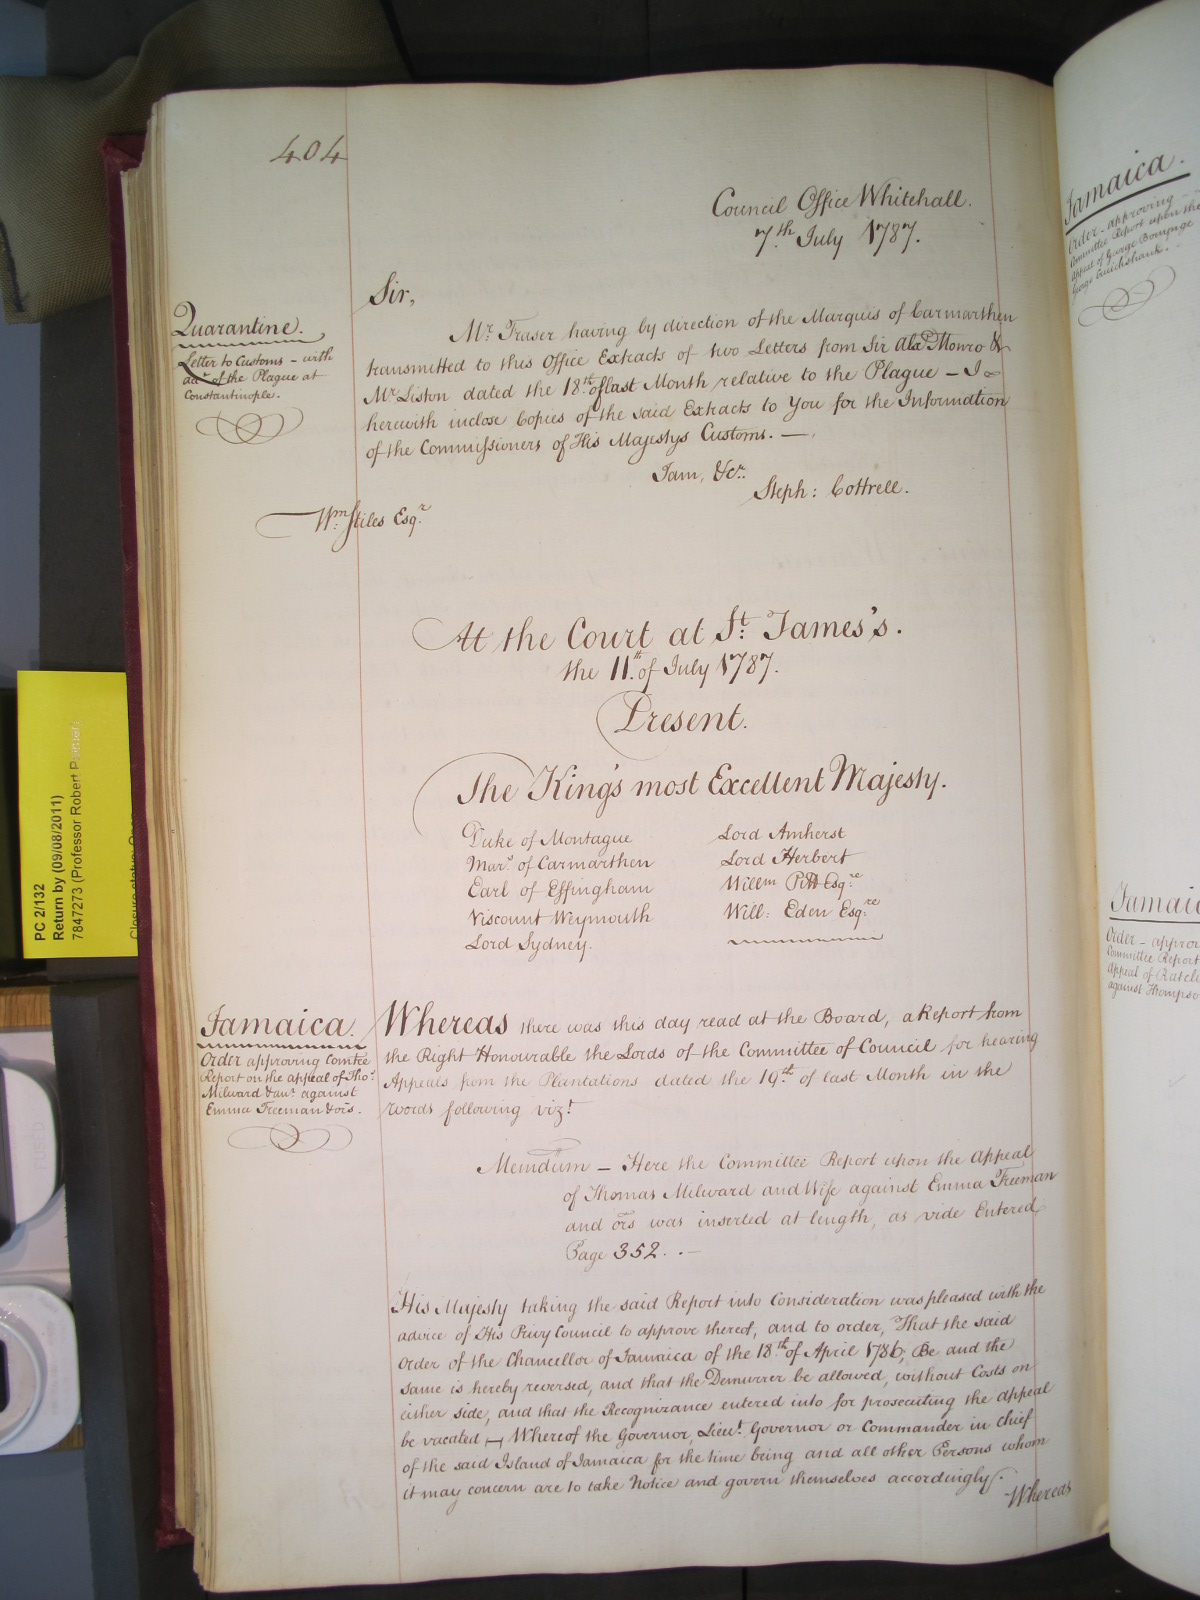 404
Council Office Whitehall.
7.th July 1787.
Sir,
Quarantine.
Letter to Customs – with
acc.t of the Plague at
Constantinople.
Mr. Fraser having by direction of the Marquis of Carmarthen
transmitted to this Office Extracts of two Letters from Sir Alex.r Monro &
Mr. Liston dated the 18.th of last Month relative to the Plague – I
herewith inclose Copies of the said Extracts to You for the Information
of the Commissioners of His Majestys Customs. —
I am, &cr.
Steph: Cottrell.
Wm. Stiles Esq.r
At the Court at St: James's.
the 11.th of July 1787.
Present.
The King's most Excellent Majesty.
Duke of Montague
Mar.s of Carmarthen
Earl of Effingham
Viscount Weymouth
Lord Sydney.
Lord Amherst
Lord Herbert
Willm Pitt Esq.re
Will: Eden Esq:re
Jamaica.
Order approving Comtee
Report on the appeal of Tho.s
Milward & an.r against
Emma Freeman & ors.
Whereas there was this day read at the Board, a Report from
the Right Honourable the Lords of the Committee of Council for hearing
Appeals from the Plantations dated the 19.th of last Month in the
words following viz.t
Memdum – Here the Committee Report upon the Appeal
of Thomas Milward and Wife against Emma Freeman
and ors was inserted at length, as vide Entered
Page 352. . –
His Majesty taking the said Report into Consideration was pleased with the
advice of His Privy Council to approve thereof, and to order, That the said
Order of the Chancellor of Jamaica of the 18.th of April 1786, Be and the
same is hereby reversed, and that the Demurrer be allowed, without Costs on
either side, and that the Recognizance entered into for prosecuting the appeal
be vacated – Whereof the Governor, Lieut. Governor or Commander in chief
of the said Island of Jamaica for the time being and all other Persons whom
it may concern are to take Notice and govern themselves accordingly.
Whereas
Jamaica.
Order – approving
Committee Report upon the
appeal of George Bompage
George Cruickshank.
Jamaic
Order – approv
Committee Report
appeal of
against Thompso
PC 2/132
Return by (09/08/2011)
7847273 (Professor Robert
Closure status: Open